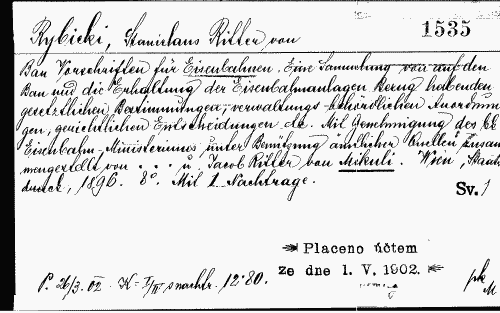 1535
Rybicki, Stanislaus Ritter von
Bau Vorschriften für Eisenbahnen. Eine Sammlung von auf den
Bau und die Erhaltung der Eisenbahnanlagen Bezug habenden
gesetzlichen Bestimmungen, verwaltungs-behördlichen Anordnun
gen, gerichtlichen Entscheidungen etc. Mit Genehmigung des k.k.
Eisenbahn-Ministeriums unter Benützung ämtlicher Quellen zusam
mengestellt von . . . u. Jacob Ritter von Mikuli. Wien, Staats
druck, 1896. 8°. Mit 1 Nachtrage.
Sv. 1
Placeno účtem
ze dne 1. V. 1902.
P. 26/3. 02 K = I/IV s nachtr. 12·80.